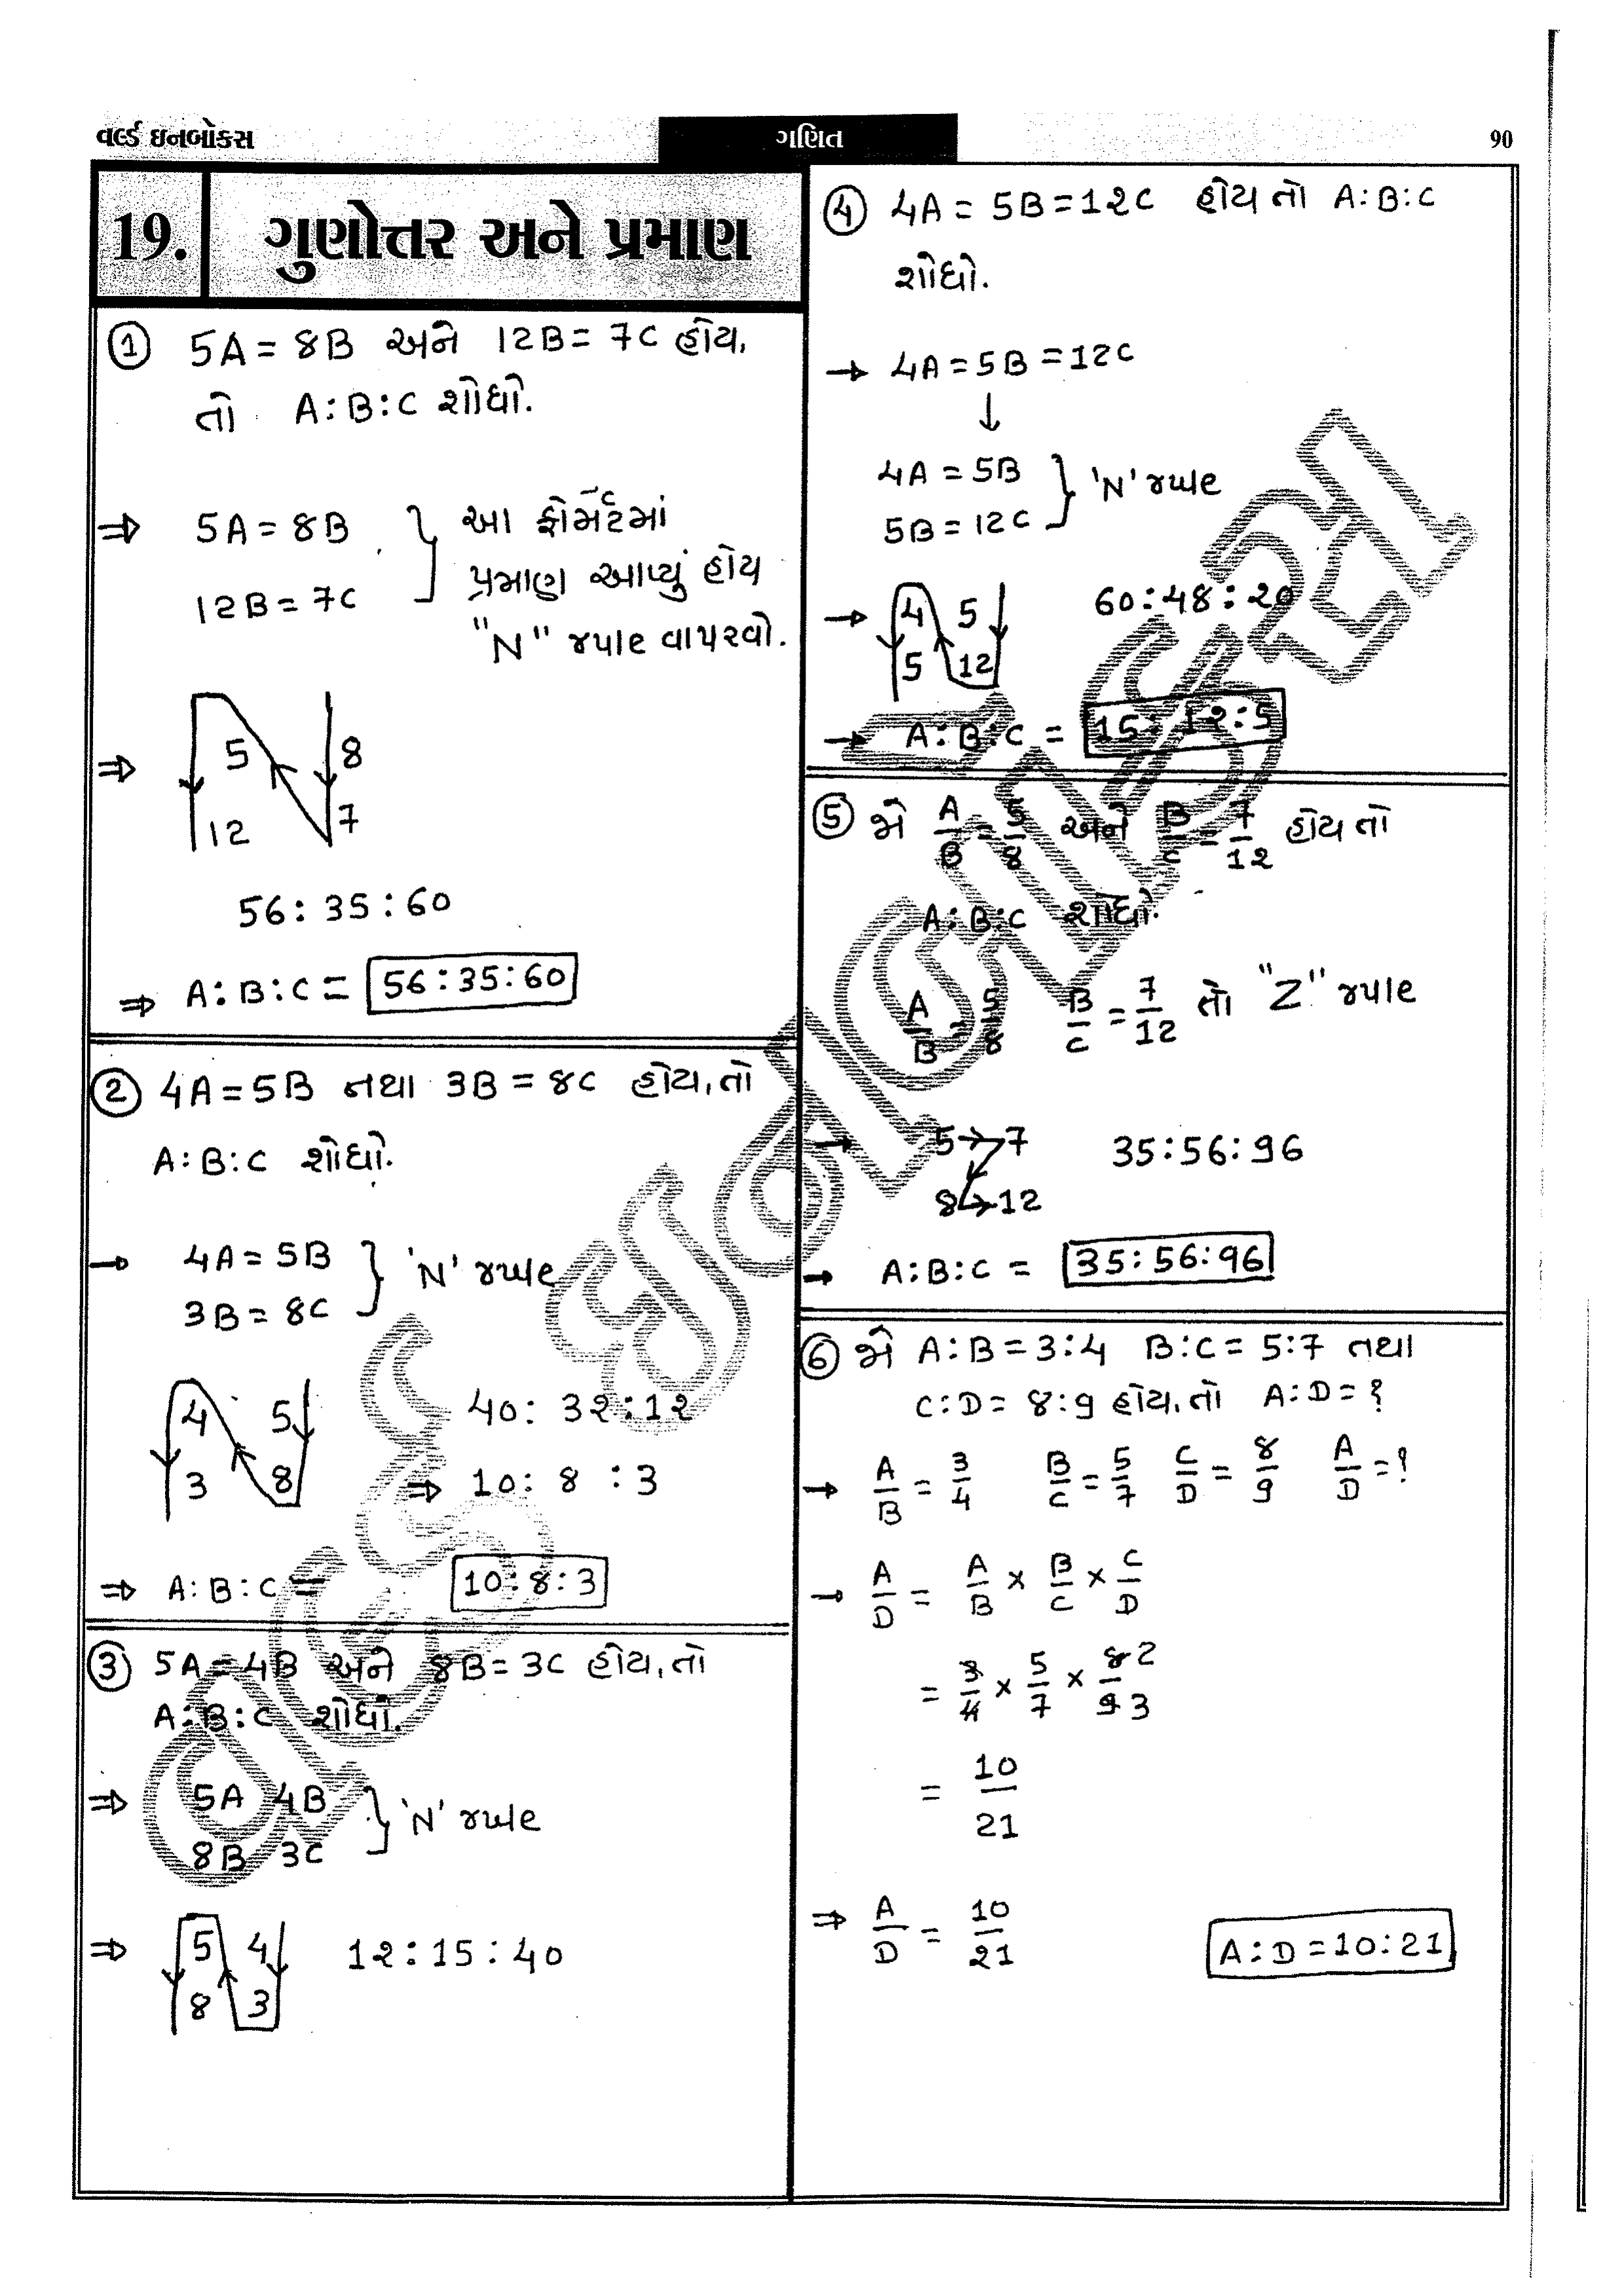 વર્લ્ડ ઇનબોક્સ
ગણિત
90
19.
ગુણોત્તર અને પ્રમાણ
① 5A = 8B અને 12B = 7C હોય,
તો A:B:C શોધો.
⇒ 5A = 8B
12B = 7C
આ ફોર્મેટમાં
પ્રમાણ આપ્યું હોય
"N" રુપાટ વાપરવો.
⇒ 5 8
12 7
56 : 35 : 60
⇒ A:B:C = 56:35:60
② 4A = 5B તથા 3B = 8C હોય, તો
A:B:C શોધો.
→ 4A = 5B
3B = 8C
'N' રુપાટ
4 5
3 8
40 : 32 : 12
⇒ 10 : 8 : 3
⇒ A:B:C = 10:8:3
③ 5A = 4B અને 8B = 3C હોય, તો
A:B:C શોધો.
⇒ 5A 4B
8B 3C
'N' રુપાટ
⇒ 5 4
8 3
12 : 15 : 40
④ 4A = 5B = 12C હોય તો A:B:C
શોધો.
→ 4A = 5B = 12C
↓
4A = 5B
5B = 12C
'N' રુપાટ
→ 4 5
5 12
60:48:20
→ A:B:C = 15:12:5
⑤ જો A/B = 5/8 અને B/C = 7/12 હોય તો
A:B:C શોધો.
A/B = 5/8 B/C = 7/12 તો "Z" રુપાટ
→ 5→7
8→12
35:56:96
→ A:B:C = 35:56:96
⑥ જો A:B = 3:4 B:C = 5:7 તથા
C:D = 8:9 હોય, તો A:D = ?
→ A/B = 3/4 B/C = 5/7 C/D = 8/9 A/D = ?
→ A/D = A/B × B/C × C/D
= 3/4 × 5/7 × 8/9 2 3
= 10/21
⇒ A/D = 10/21
A:D = 10:21